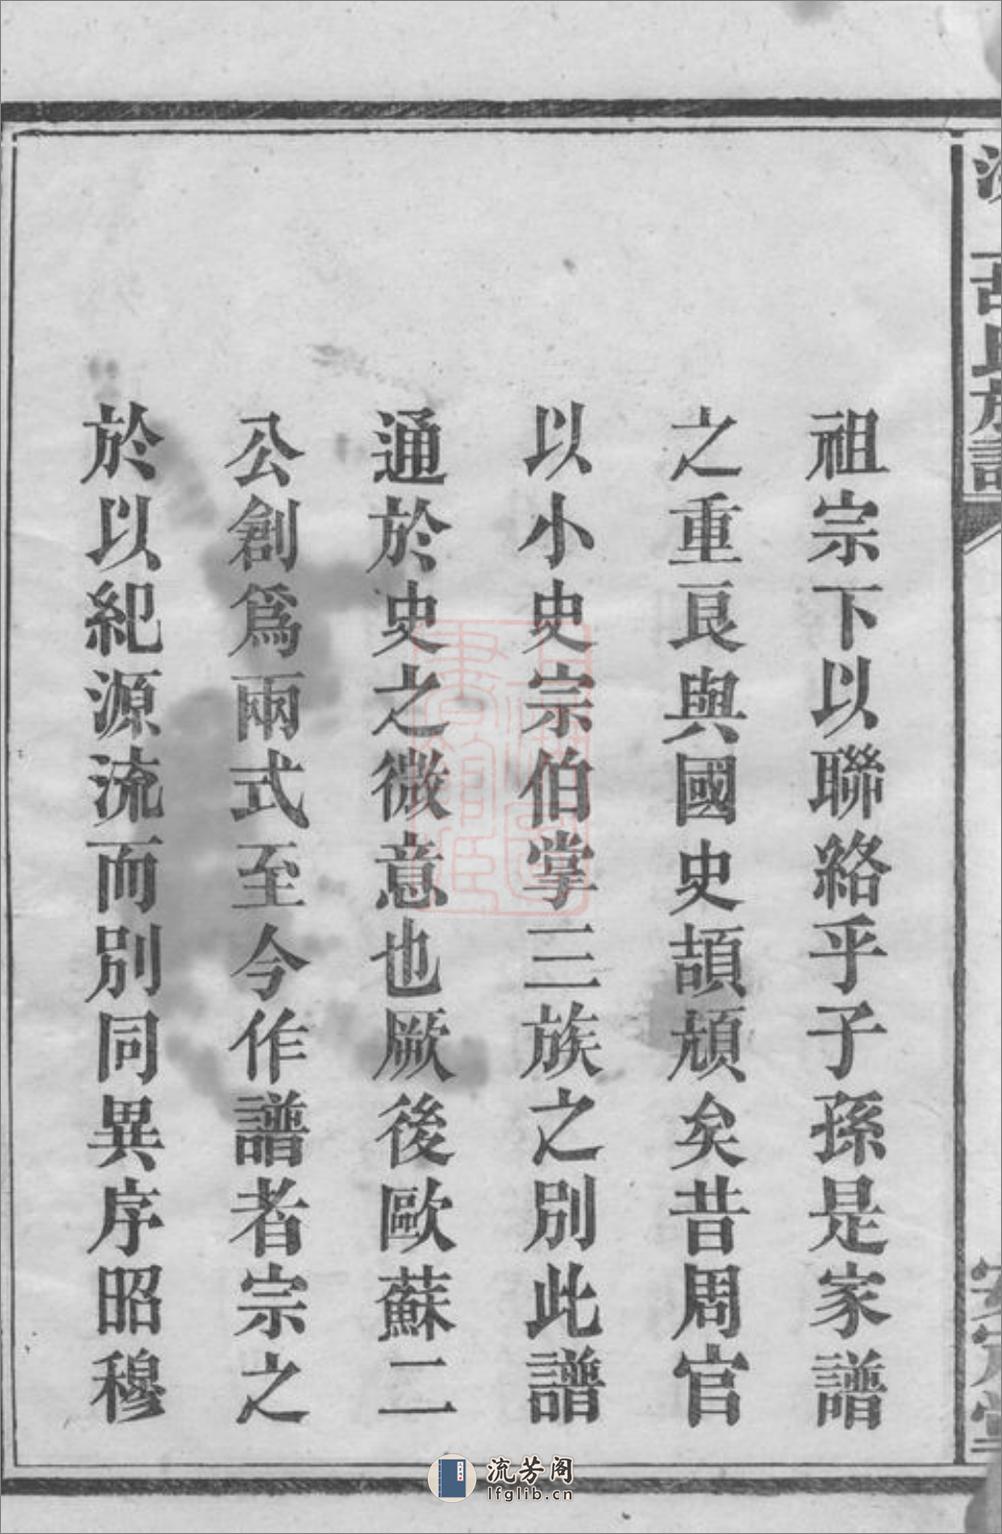 胡氏族譜
安定堂
祖宗下以聯絡乎子孫是家譜
之重良與國史頡頏矣昔周官
以小史宗伯掌三族之別此譜
通於史之微意也厥後歐蘇二
公創爲兩式至今作譜者宗之
於以紀源流而別同異序昭穆
流芳阁
lfglib.cn